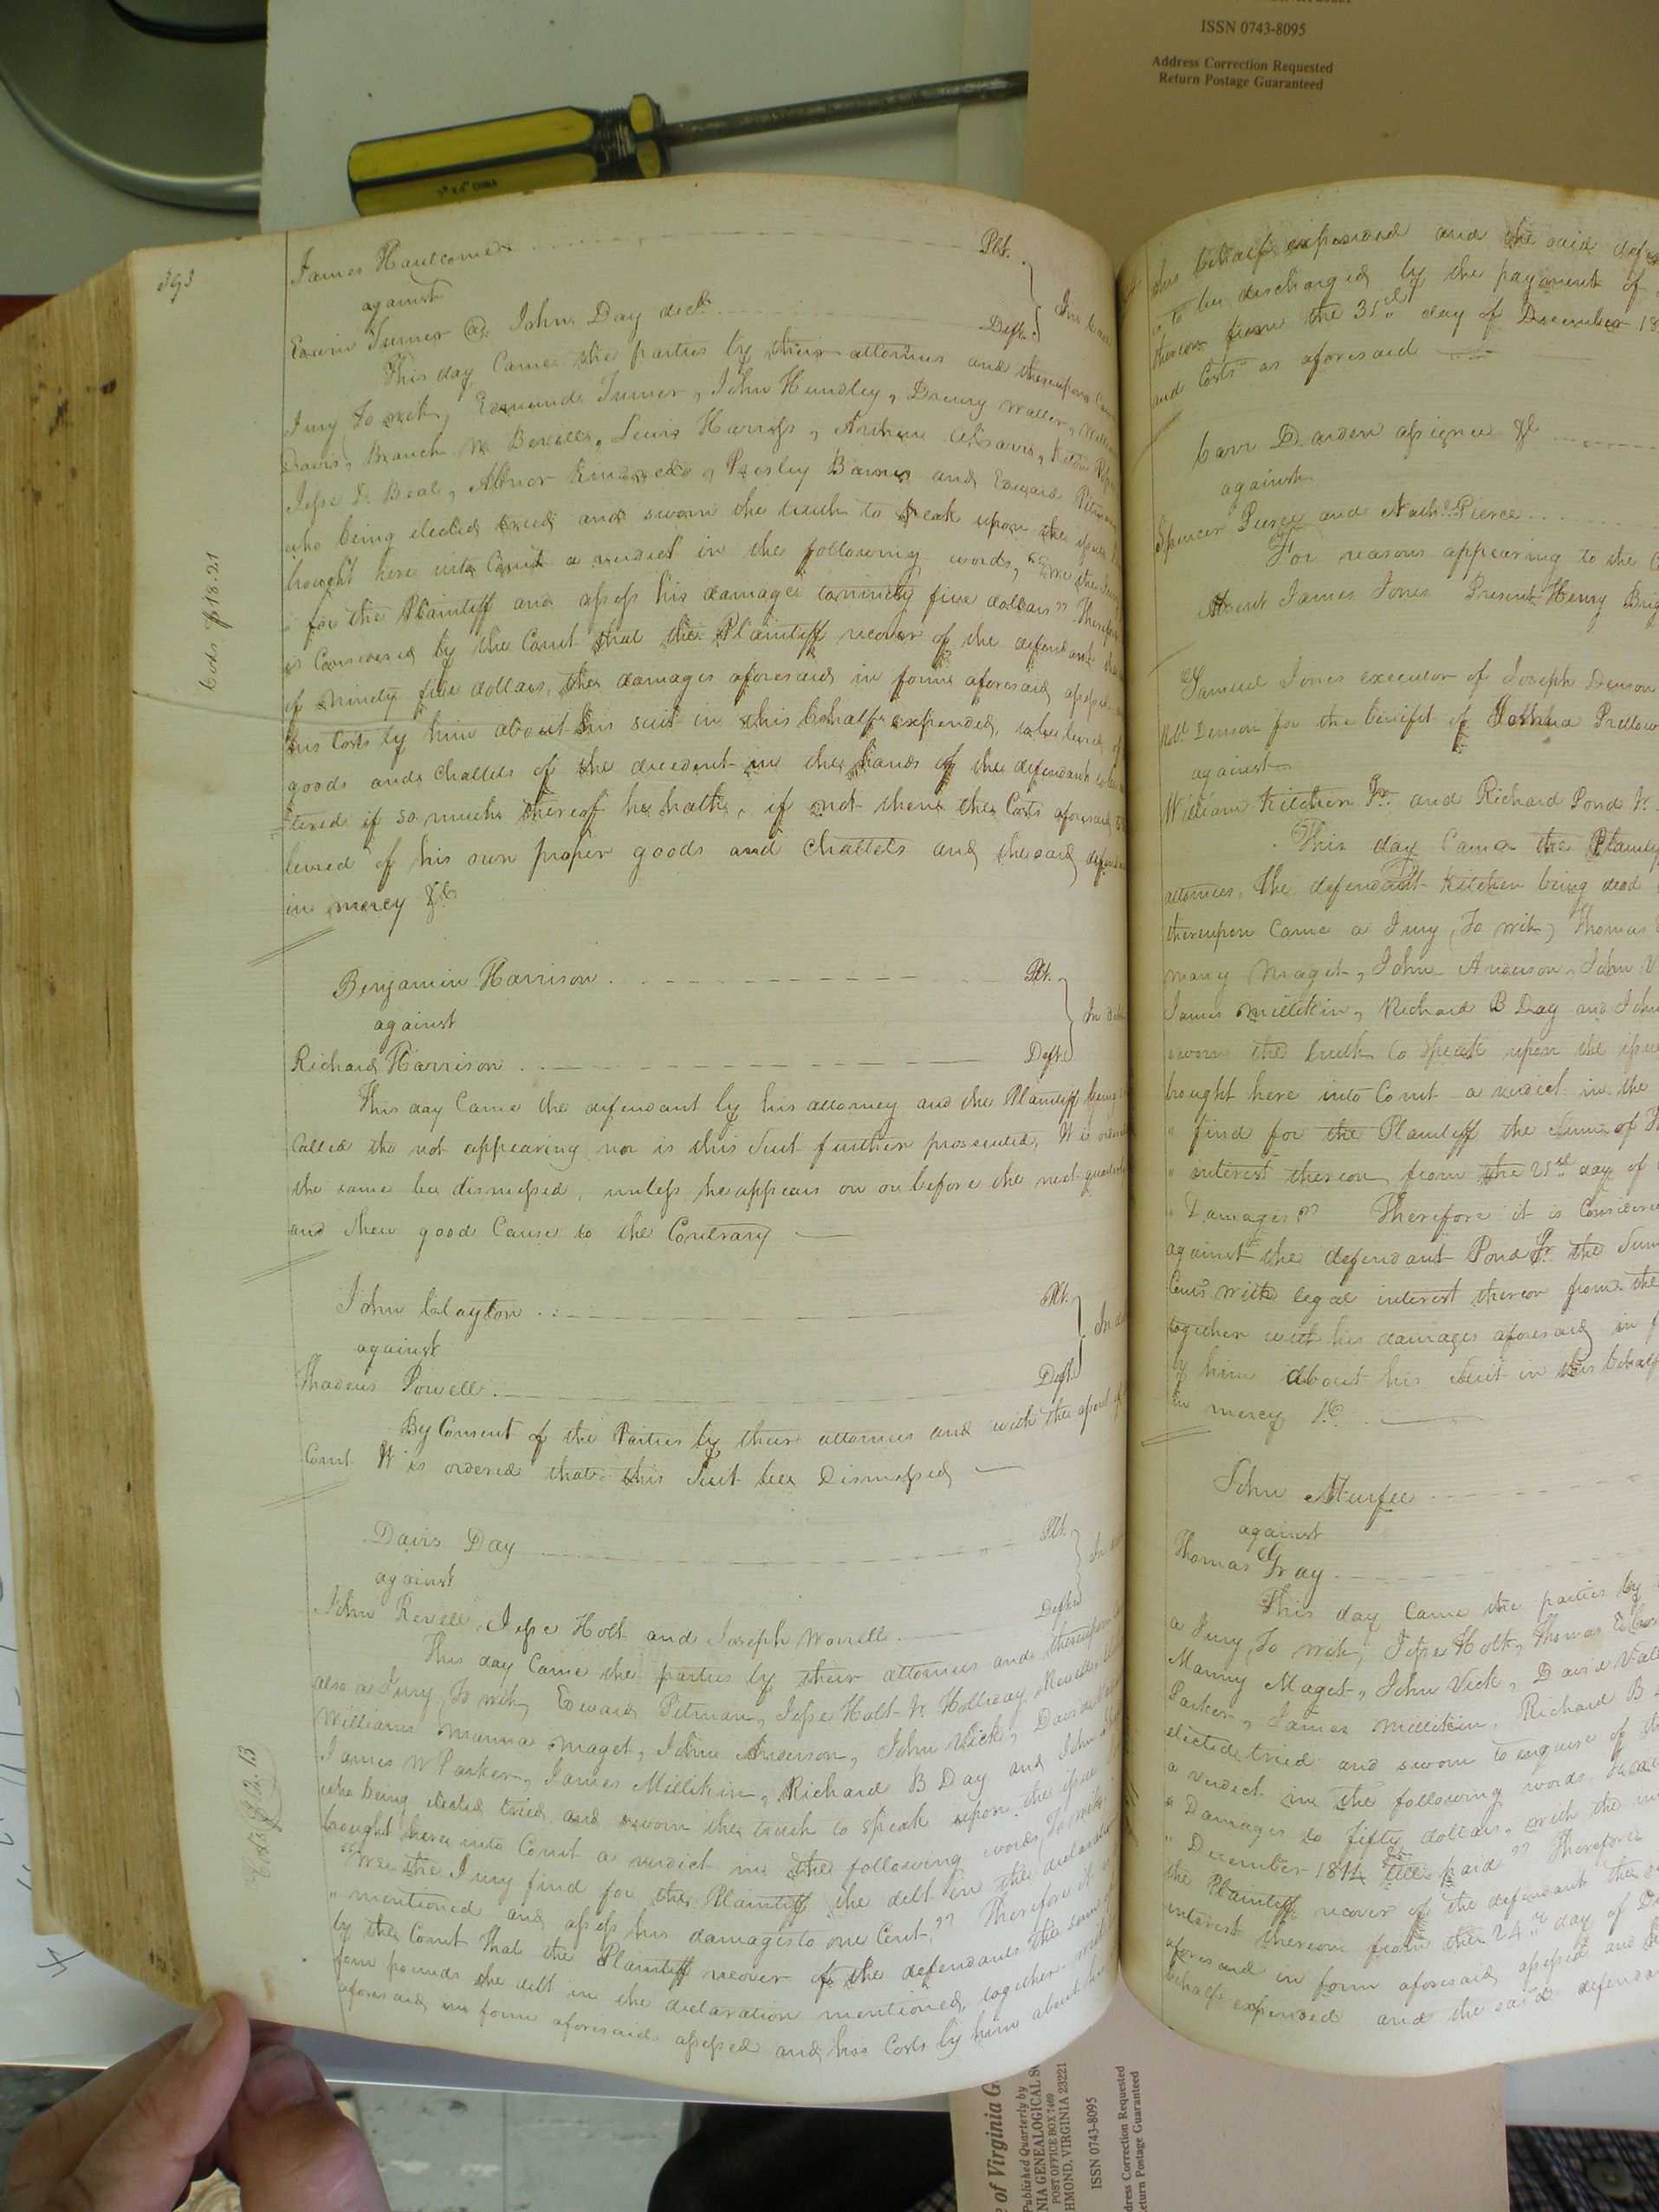 ISSN 0743-8095
Address Correction Requested
Return Postage Guaranteed
James Hautcome Plt.
against
Edwin Turner @ John Day decd. Deft.
This day Came the parties by their attornies and thereupon Came
Jury, To wit, Edmund Turner, John Hundley, Drewry Waller,
Davis, Branch M. Bevill, Lewis Harriss, Arthur
Jesse D. Beal, Abner Kindred, Presley Barnes and Edward Pitman
who being elected tried and sworn the truth to speak upon the issue
brought here into Court a verdict in the following words, "We the Jury
" for the Plaintiff and assess his damages to ninety five dollars" Therefore
is Considered by the Court that the Plaintiff recover of the defendant
of ninety five dollars, the damages aforesaid in form aforesaid assessed
his Costs by him about his suit in this behalf expended, to be levied of
goods and Chattels of the decedent in the hands of the defendant
tered if so much thereof he hath, if not then the Costs aforesaid to
levied of his own proper goods and Chattels and the said
in mercy &c
Costs $18.21
Benjamin Harrison Plt.
against In
Richard Harrison Deft.
This day Came the defendant by his attorney and the Plaintiff being
Called tho not appearing nor is this Suit further prosecuted, It is
the same be dismissed, unless he appears on or before the next
and shew good Cause to the Contrary
John Clayton Plt.
against In
Thadeus Powell Deft.
By Consent of the Parties by their attornies and with the assent of
Court It is ordered that this Suit be Dismissed
Davis Day Plt.
against In
John Revell, Jesse Holt and Joseph Worrell Defts
This day Came the parties by their attornies and thereupon
also a Jury, To wit, Edward Pitman, Jesse Holt, Holliday
Williams Manna Maget, John Anderson, John Vick, David
James W Parker, James Millikin, Richard B Day and John
who being elected tried and sworn the truth to speak upon the issue
brought here into Court a verdict in the following words, To wit,
"We the Jury find for the Plaintiff the debt in the declaration
" mentioned and assess his damages to one Cent," Therefore it
by the Court that the Plaintiff recover of the defendants the sum of
four pounds the debt in the declaration mentioned, together with
aforesaid in form aforesaid assessed and his Costs by him about
Costs $12.13
this behalf expended and the said
is to be discharged by the payment of
thereon from the 31st day of December 18
and Costs as aforesaid
Carr Darden assignee &c
against
Spencer Pierce and Nathl. Pierce
For reasons appearing to the
Absent James Jones Present Henry
Samuel Jones executor of Joseph Denson
Denson for the benefit of Joshua
against
William Kitchen Jr. and Richard Pond Jr.
This day Came the
attornies, the defendant Kitchen being dead
thereupon Came a Jury, To wit, Thomas
Manny Maget, John Anderson, John
James Millikin, Richard B Day and John
sworn the truth to speak upon the issue
brought here into Court a verdict in the
" find for the Plaintiff the Sum of
" interest thereon from the 25th day of
" Damages" Therefore it is Considered
against the defendant Pond Jr. the Sum
Cents with legal interest thereon from the
together with his damages aforesaid in
by him about his Suit in this behalf
in mercy &c.
John Murfee
against
Thomas Gray
This day Came the parties by
a Jury, To wit, Jesse Holt, Thomas
Manny Maget, John Vick, David
Parker, James Millikin, Richard B
elected tried and sworn to enquire of
a verdict in the following words
" Damages to fifty dollars, with the
" December 1814 till paid" Therefore
the Plaintiff recover of the defendant the
interest thereon from the 24th day of
aforesaid in form aforesaid assessed and
behalf expended and the said
of Virginia
Published Quarterly by
GENEALOGICAL
POST OFFICE BOX 7469
VIRGINIA 23221
ISSN 0743-8095
Address Correction Requested
Return Postage Guaranteed